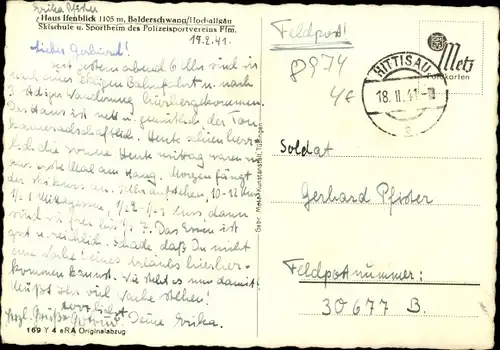 Erika Pfister
Haus Ifenblick 1105 m, Balderschwang/Hochallgäu
Skischule u. Sportheim des Polizeisportvereins Ffm.
17.2.41.
Lieber Gerhard!
Seit gestern abend 6 Uhr sind wir
nach einer Bahnfahrt u. nach
3 stdiger Wanderung hier angekommen.
Das Haus ist nett u. gemütlich der Ton
kameradschaftlich. Heute schien herr-
lich die Sonne Heute mittag waren wir
das erste Mal am Hang. Morgen fängt
der Skikurs an. aufstehen, 10-12 Kurs
Mittagessen, Kurs, dann
sind wir frei bis 7. Das Essen ist
gut u. reichlich. Schade daß Du nicht
eine Woche Deines Urlaubs hierher-
kommen kannst. Wie steht es nun damit?
Müßt Ihr viel Wache stehen?
herzlichst
Herzl. Grüße Deine Erika.
169 Y 4 eRA Originalabzug
Gebr. Metz, Kunstanstalt, Tübingen
Feldpost!
8974
Metz
Postkarten
HITTISAU
18. II. 41
Soldat
Gerhard Pfister
Feldpostnummer:
30677 B.